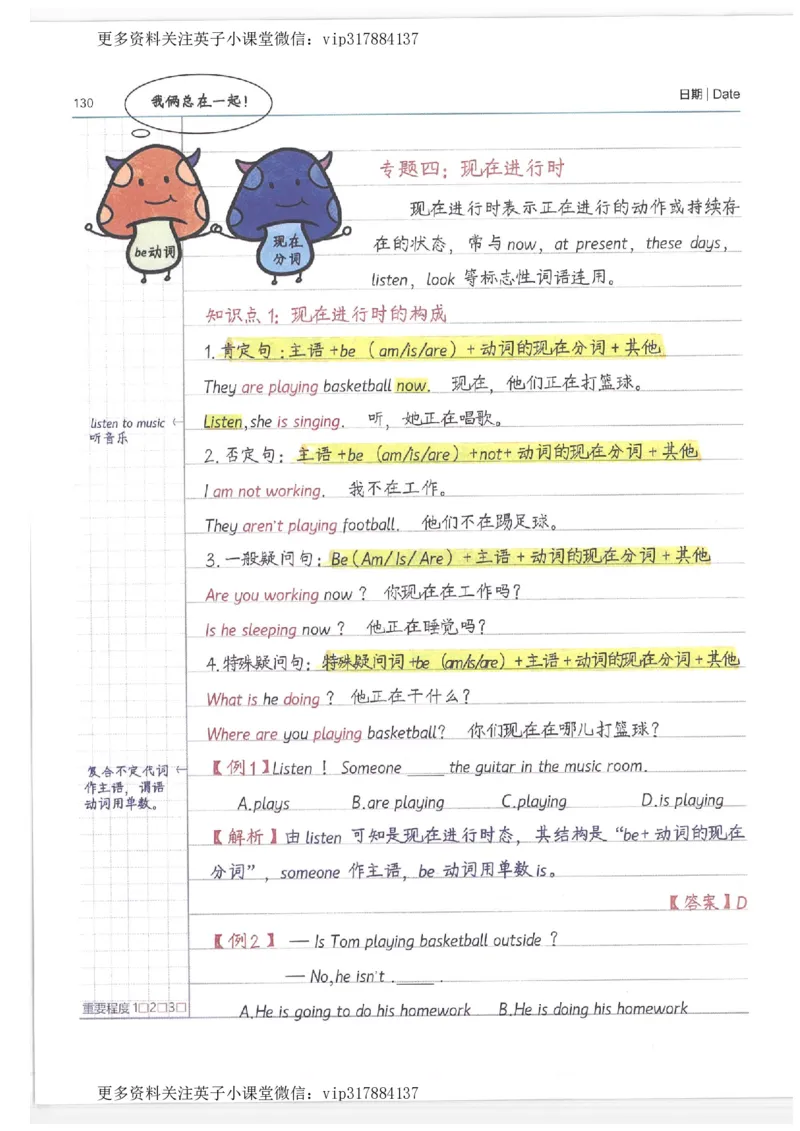 更多资料关注英子小课堂微信：vip317884137
130
日期 | Date
我俩总在一起！
be动词
现在
分词
专题四：现在进行时
现在进行时表示正在进行的动作或持续存
在的状态，常与 now，at present，these days，
listen，look 等标志性词语连用。
知识点 1：现在进行时的构成
1.肯定句：主语+be（am/is/are）+动词的现在分词+其他
They are playing basketball now. 现在，他们正在打篮球。
listen to music ←
听音乐
Listen,she is singing. 听，她正在唱歌。
2.否定句：主语+be（am/is/are）+not+动词的现在分词+其他
I am not working. 我不在工作。
They aren't playing football. 他们不在踢足球。
3.一般疑问句：Be(Am/Is/Are）+主语+动词的现在分词+其他
Are you working now？ 你现在在工作吗？
Is he sleeping now？ 他正在睡觉吗？
4.特殊疑问句：特殊疑问词+be（am/is/are）+主语+动词的现在分词+其他
What is he doing？ 他正在干什么？
Where are you playing basketball？ 你们现在在哪儿打篮球？
复合不定代词 ←
作主语，谓语
动词用单数。
【例1】Listen！ Someone ____ the guitar in the music room.
A.plays B.are playing C.playing D.is playing
【解析】由 listen 可知是现在进行时态，其结构是“be+动词的现在
分词”，someone 作主语，be 动词用单数 is。
【答案】D
【例2】 — Is Tom playing basketball outside？
— No,he isn't .____ .
A.He is going to do his homework B.He is doing his homework
重要程度 1□2□3□
更多资料关注英子小课堂微信：vip317884137